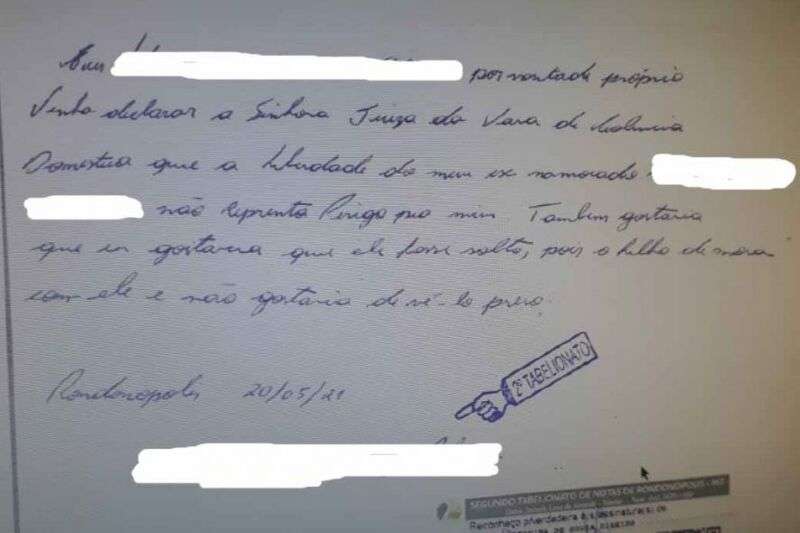 Eu por vontade própria
Venho declarar a Sinhora Juiza da Vara de Violencia
Domestica que a liberdade do meu ex namorado
não reprenta Perigo pra mim. Tambem gostaria
que eu gostaria que ele fosse solto, pois o filho de mora
com ele e não gostaria de vê-lo preso.
Rondonopolis 20/05/21
2º TABELIONATO
SEGUNDO TABELIONATO DE NOTAS DE RONDONOPOLIS - MT
Reconheço p/verdadeira a(s) assinatura(s) de